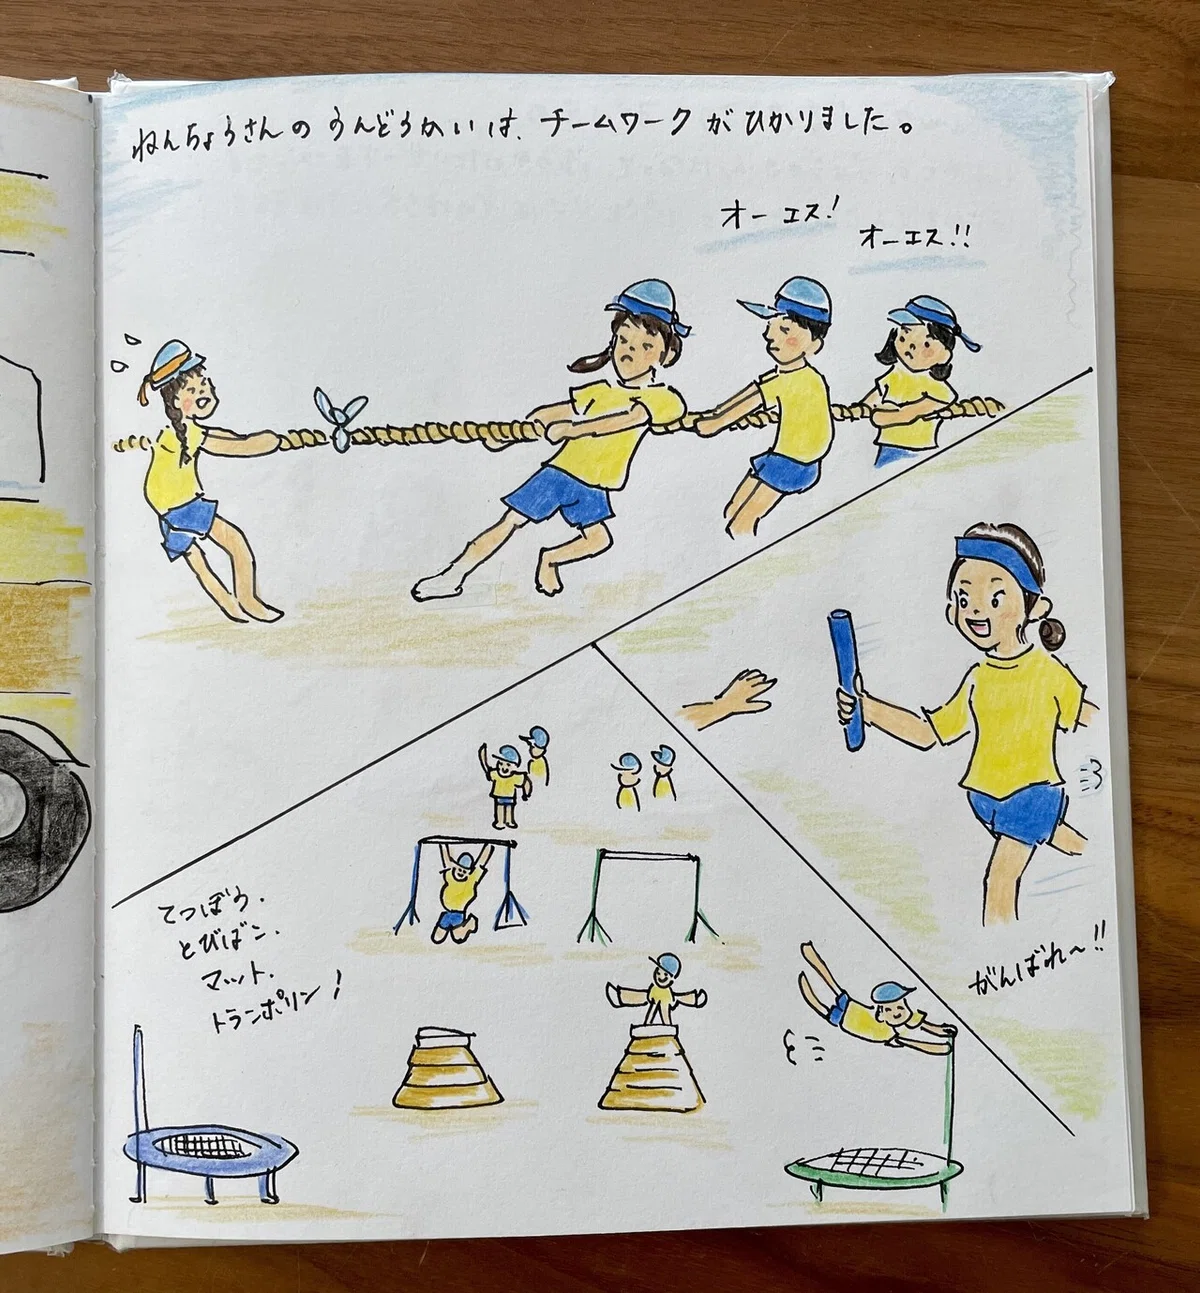 ねんちょうさんの うんどうかいは、チームワークがひかりました。
オーエス!
オーエス!!
てつぼう、
とびばこ、
マット、
トランポリン!
がんばれ〜!!